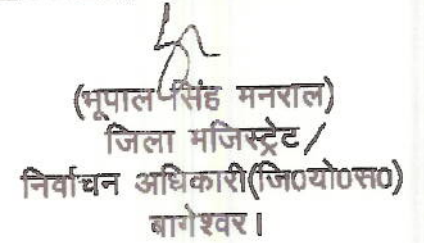 (भूपाल सिंह मनराल)
जिला मजिस्ट्रेट /
निर्वाचन अधिकारी(जि0यो0स0)
बागेश्वर।